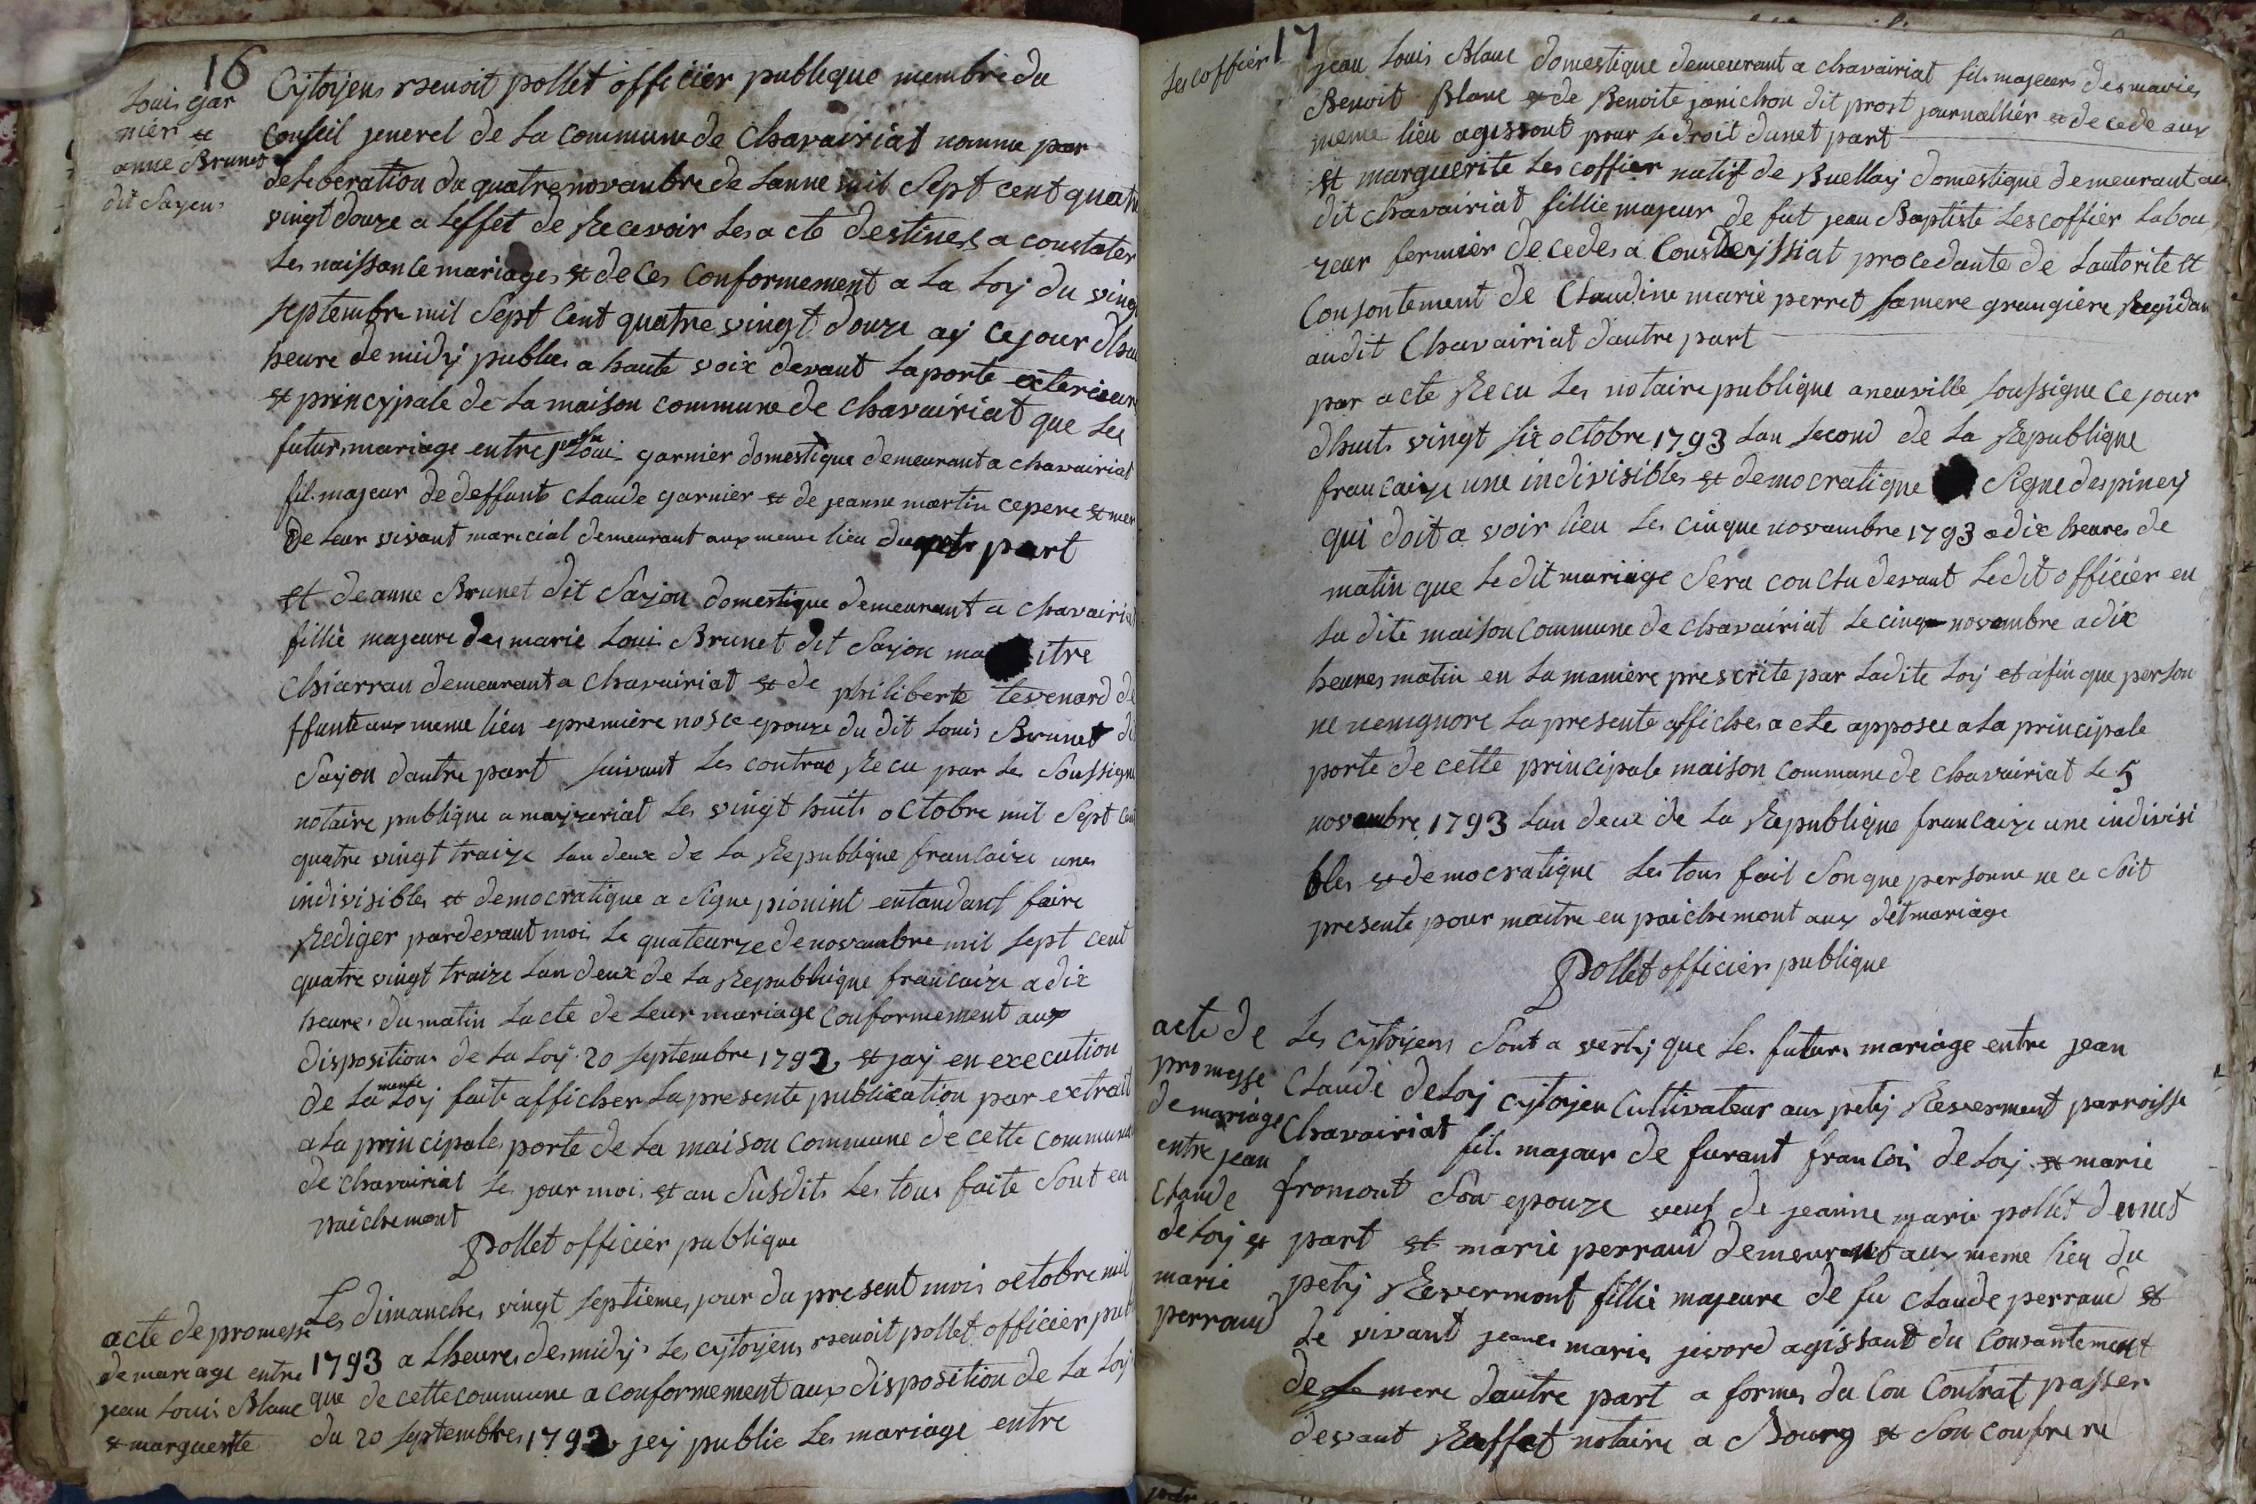 16
Louis gar
nier et
anne Brunet
dit Sayon
Cytoyens Benoit pollet officier publique membre du
Conseil jenerel de la Commune de Chavairiat nomme par
deliberation du quatre novanbre de lanne mil Sept cent quatre
vingt douze a Leffet de Recevoir Les acte destines a constater
Les naissance mariages et deces conformement a La Loy du vingt
septembre mil Sept Cent quatre vingt douze ay ce jour dhui
heure de midy publies a haute voix devant la porte exterieure
et princypale de La maison commune de chavairiat que Les
futurs mariage entre Loui garnier domestique demeurant a chavairiat
fils majeur de deffunt claude garnier et de jeanne martin ce pere et mere
De Leur vivant marecial demeurant aux meme lieu part
et de anne Brunet dit Sayon domestique demeurant a chavairiat
fillie majeure des marie Loui Brunet dit Sayon ma itre
Chiarran demeurant a Chavairiat et de philiberte tevenard de
ffunte aux meme lieu epremiere nosce epouze du dit Louis Brunet dit
Sayon dautre part suivant Les contrac Recu par Les Soussigne
notaire publique a mayzeriat Les vingt huits octobre mil Sept cent
quatre vingt traize Lan deux de La Republique francaize unes
indivisibles et democratique a Signe pionint entandant faire
Rediger pardevant moi Le quateurze de novambre mil sept cent
quatre vingt traize Lan deux de La Republuique francaize a dix
heures du matin Lacte de Leur mariage conformement aux
dispositions de La Loy 20 septembre 1792 et jay en execution
de La meme Loy fait afficher La presente publication par extrait
a La principales porte de La maison Commune de cette commune
de chavairiat Les jour mois et an Susdits Les tous faite Sont en
paichemont
Pollet officier publique
acte de promesse
de mareage entre
jean Louis Blanc
et marguerite
Les dimanches vingt septiemes jour du present mois octobre mil
1793 a Lheures de midy Les cytoyens Benoit pollet officier publi
que de cette commune a conformement aux disposition de La Loy
du 20 septembres 1792 jey publie Les mariage entre
17
Lescoffier
jean Louis Blanc domestique demeurant a chavairiat fils majeurs des maries
Benoit Blanc et de Benoite janichon dit prost journallier et decede aux
meme lieu agissant pour Le droit dunet part
et marguerite Les coffier natif de Buellay domestique demeurant au
dit chavairiat fillie majeur de fut jean Baptiste Lescoffier Labou
reur fermier decedes a Consteyssiat procedante de Lautorite et
Consontement de Claudine marie perret Samere grangiere Regidan
audit Chavairiat dautre part
par acte Recu Les notaire publique a neuville soussigne ce jour
dhuits vingt six octobre 1793 Lan second de La Republique
francaize une indivisibles et democratique Signe despiney
qui doit a voir lieu Les cinque novambre 1793 a dix heures de
matin que Le dit mariage Sera conclu devant Ledit officier en
La dite maison commune de chavairiat Le cinqe novombre a dix
heures matin en La maniere prescrite par Ladite Loy et afin que person
ne nenignore La presente affiches acte apposee a La principale
porte de cette principale maison commune de chavairiat Le 5
novembre 1793 Lan deux de La Republique francaize une indivisi
bles et democratique Les tous fait Son que personne ne ce Soit
presente pour maitre en paichemont aux dit mariage
Pollet officier publique
acte de
promesse
de mariage
entre jean
Claude
de Loy et
marie
perraud
Les cytoyens Sont a verty que Les futurs mariage entre jean
Claude de Loy cytoyen Cultivateur aux pety Reverment parroisse
Chavairiat fils majour de furant francois de Loy et marie
fromont Son epouze veuf de jeanne marie pollet dunet
part et marie perraud demeurant aux meme lieu du
pety Revermont fillie majeure de fu claude perraud et
de vivant jeanes maries jevord agissant du Consantement
de Sa mere dautre part a formes du Con Contrat passer
devant Raffet notaire a Bourg et Son confrere